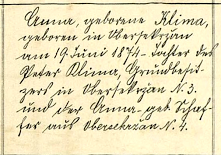 Anna, geborene Klima,
geboren in Obersekrzan
am 19. Juni 1874 - Tochter des
Peter Klima, Grundbesit-
zers in Obersekrzan N. 3.
und der Anna - geb. Schaf-
fer aus Obersekrzan N. 4.